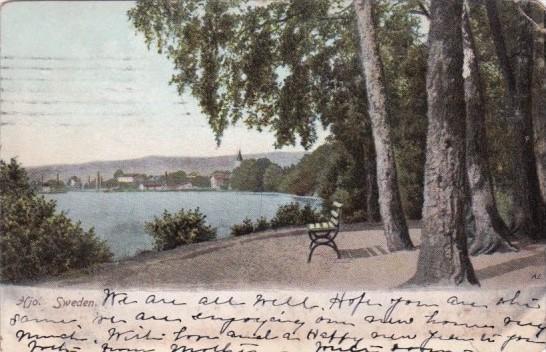 Hjo. Sweden.
A.L.
We are all well. Hope you are the
same. We are enjoying our new home very
much. With love and a Happy new year to you
both from Mother